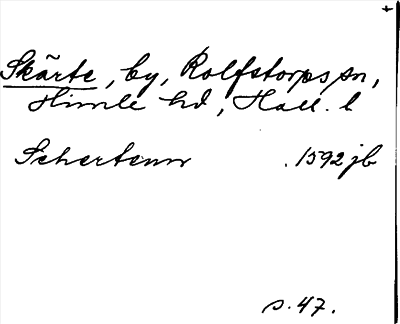 +
Skärte, by, Rolfstorps sn,
Himle hd, Hall. l
Schertenn .1592 jb
s. 47.